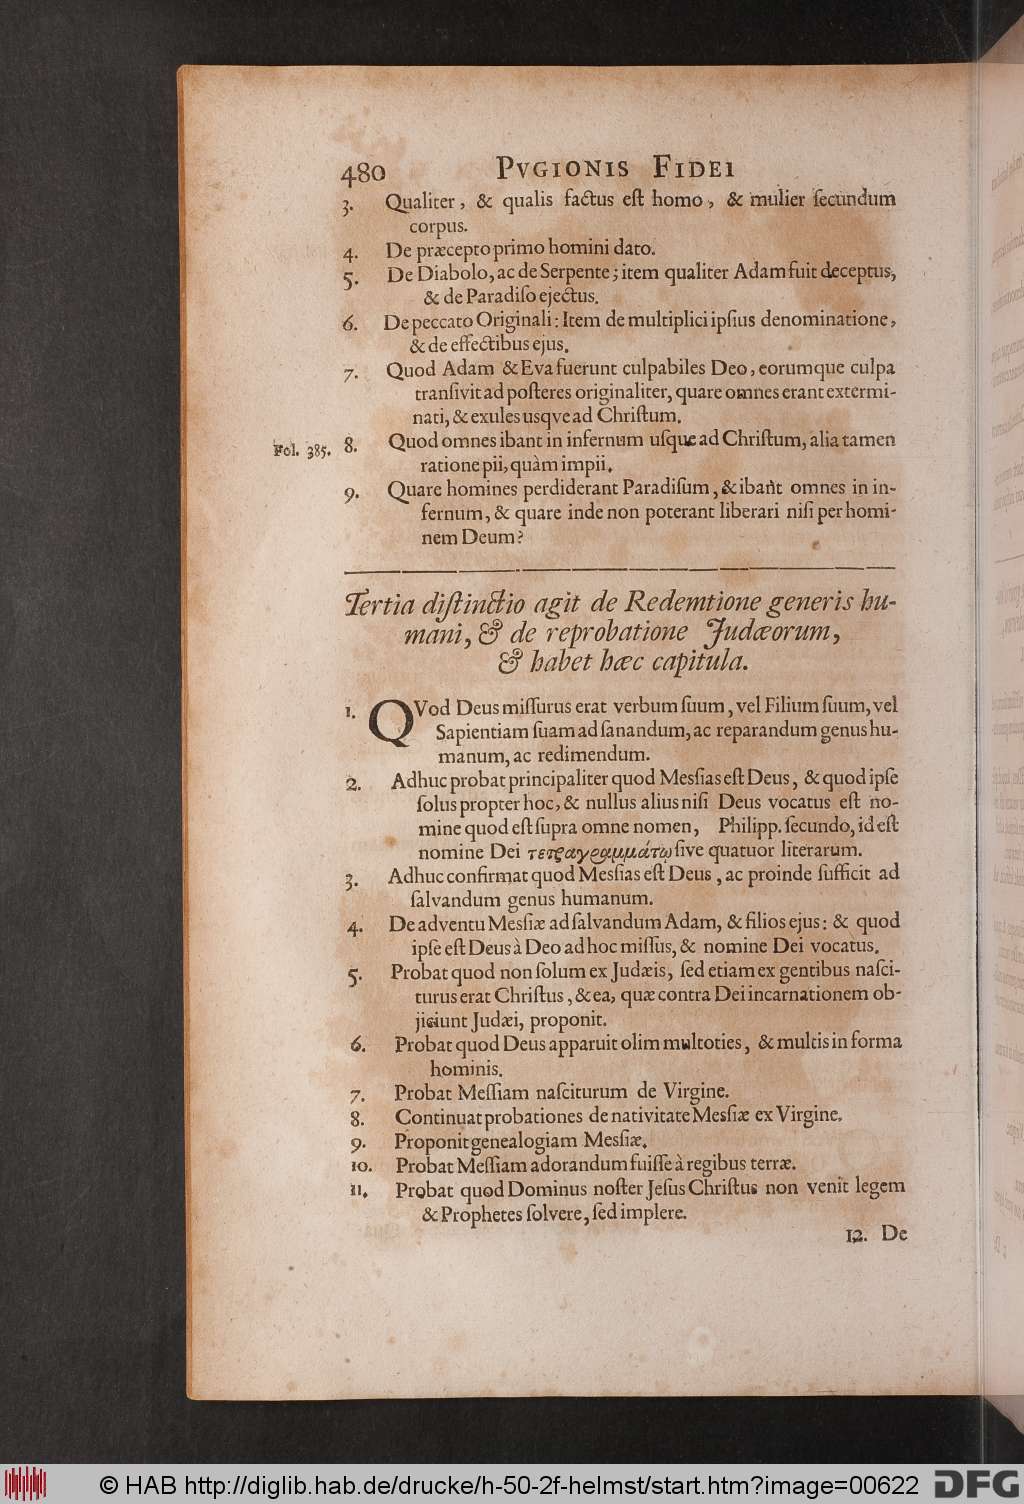 480 PVGIONIS FIDEI
3. Qualiter, & qualis factus eſt homo, & mulier ſecundum
corpus.
4. De præcepto primo homini dato.
5. De Diabolo, ac de Serpente; item qualiter Adam fuit deceptus,
& de Paradiſo ejectus.
6. De peccato Originali: Item de multiplici ipſius denominatione,
& de effectibus ejus.
7. Quod Adam & Eva fuerunt culpabiles Deo, eorumque culpa
tranſivit ad poſteres originaliter, quare omnes erant extermi-
nati, & exules usqve ad Chriſtum.
Fol. 385. 8. Quod omnes ibant in infernum uſque ad Chriſtum, alia tamen
ratione pii, quàm impii.
9. Quare homines perdiderant Paradiſum, & ibant omnes in in-
fernum, & quare inde non poterant liberari niſi per homi-
nem Deum?
Tertia diſtinctio agit de Redemtione generis hu-
mani, & de reprobatione Judæorum,
& habet hæc capitula.
1. QVod Deus miſſurus erat verbum ſuum, vel Filium ſuum, vel
Sapientiam ſuam ad ſanandum, ac reparandum genus hu-
manum, ac redimendum.
2. Adhuc probat principaliter quod Mesſias eſt Deus, & quod ipſe
ſolus propter hoc, & nullus alius niſi Deus vocatus eſt no-
mine quod eſt ſupra omne nomen, Philipp. ſecundo, id eſt
nomine Dei τετραγραμμάτῳ ſive quatuor literarum.
3. Adhuc confirmat quod Mesſias eſt Deus, ac proinde ſufficit ad
ſalvandum genus humanum.
4. De adventu Mesſiæ ad ſalvandum Adam, & filios ejus: & quod
ipſe eſt Deus à Deo ad hoc miſſus, & nomine Dei vocatus.
5. Probat quod non ſolum ex Judæis, ſed etiam ex gentibus naſci-
turus erat Chriſtus, & ea, quæ contra Dei incarnationem ob-
jiciunt Judæi, proponit.
6. Probat quod Deus apparuit olim multoties, & multis in forma
hominis.
7. Probat Meſſiam naſciturum de Virgine.
8. Continuat probationes de nativitate Mesſiæ ex Virgine.
9. Proponit genealogiam Mesſiæ.
10. Probat Meſſiam adorandum fuiſſe à regibus terræ.
11. Probat quod Dominus noſter Jeſus Chriſtus non venit legem
& Prophetes ſolvere, ſed implere.
12. De
© HAB http://diglib.hab.de/drucke/h-50-2f-helmst/start.htm?image=00622 DFG